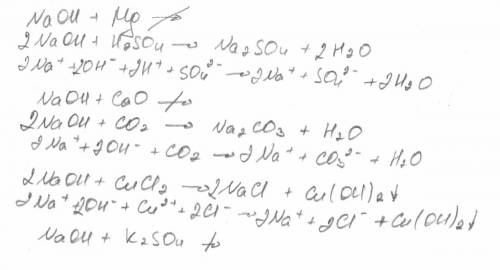 NaOH + Mg ↛
2NaOH + H₂SO₄ → Na₂SO₄ + 2H₂O
2Na⁺ + 2OH⁻ + 2H⁺ + SO₄²⁻ → 2Na⁺ + SO₄²⁻ + 2H₂O
NaOH + CaO ↛
2NaOH + CO₂ → Na₂CO₃ + H₂O
2Na⁺ + 2OH⁻ + CO₂ → 2Na⁺ + CO₃²⁻ + H₂O
2NaOH + CuCl₂ → 2NaCl + Cu(OH)₂↓
2Na⁺ 2OH⁻ + Cu²⁺ + 2Cl⁻ → 2Na⁺ + 2Cl⁻ + Cu(OH)₂↓
NaOH + K₂SO₄ ↛